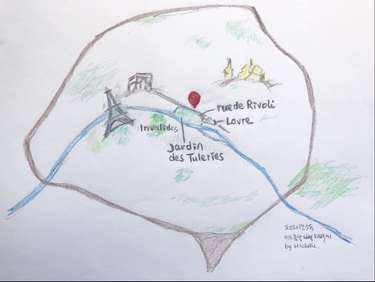 rue de Rivoli
Lovre
Invalides
Jardin
des Tuleries
by Michelle